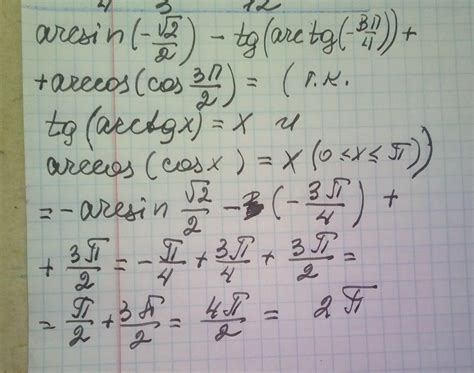 4 3 12
arcsin(-√2/2) - tg(arctg(-3π/4)) +
+ arccos(cos 3π/2) = ( т.к.
tg(arctgx) = x и
arccos(cosx) = x (0 ≤ x ≤ π))
= -arcsin √2/2 - (-3π/4) +
+ 3π/2 = -π/4 + 3π/4 + 3π/2 =
= π/2 + 3π/2 = 4π/2 = 2π